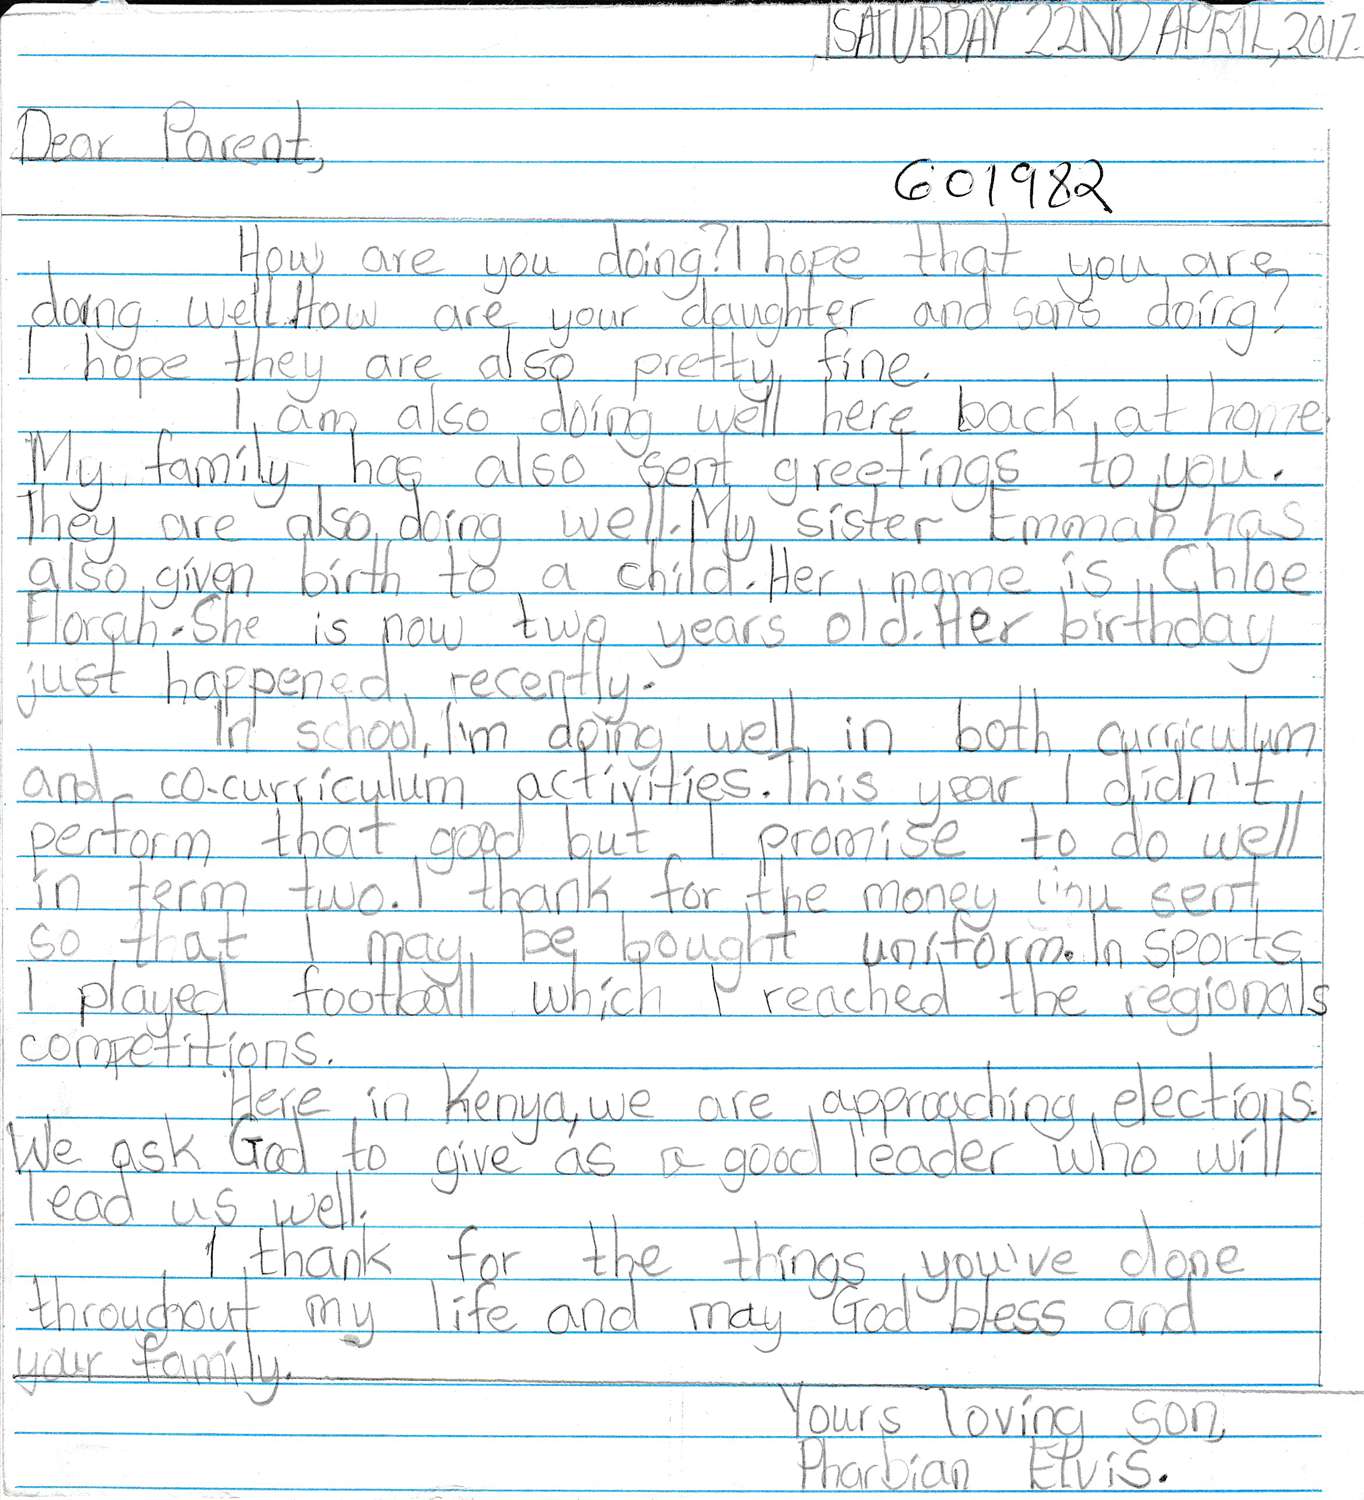 SATURDAY 22ND APRIL, 2017.
Dear Parent,
601982
How are you doing? I hope that you are
doing well. How are your daughter and sons doing?
I hope they are also pretty fine.
I am also doing well here back at home.
My family has also sent greetings to you.
They are also doing well. My sister Emmah has
also given birth to a child. Her name is Chloe
Florah. She is now two years old. Her birthday
just happened recently.
In school, I'm doing well in both curriculum
and co-curriculum activities. This year I didn't
perform that good but I promise to do well
in term two. I thank for the money you sent
so that I may be bought uniform. In sports
I played football which I reached the regionals
competitions.
Here in Kenya, we are approaching elections.
We ask God to give as a good leader who will
lead us well.
I thank for the things you've done
throughout my life and may God bless and
your family.
Yours loving son,
Pharbian Elvis.